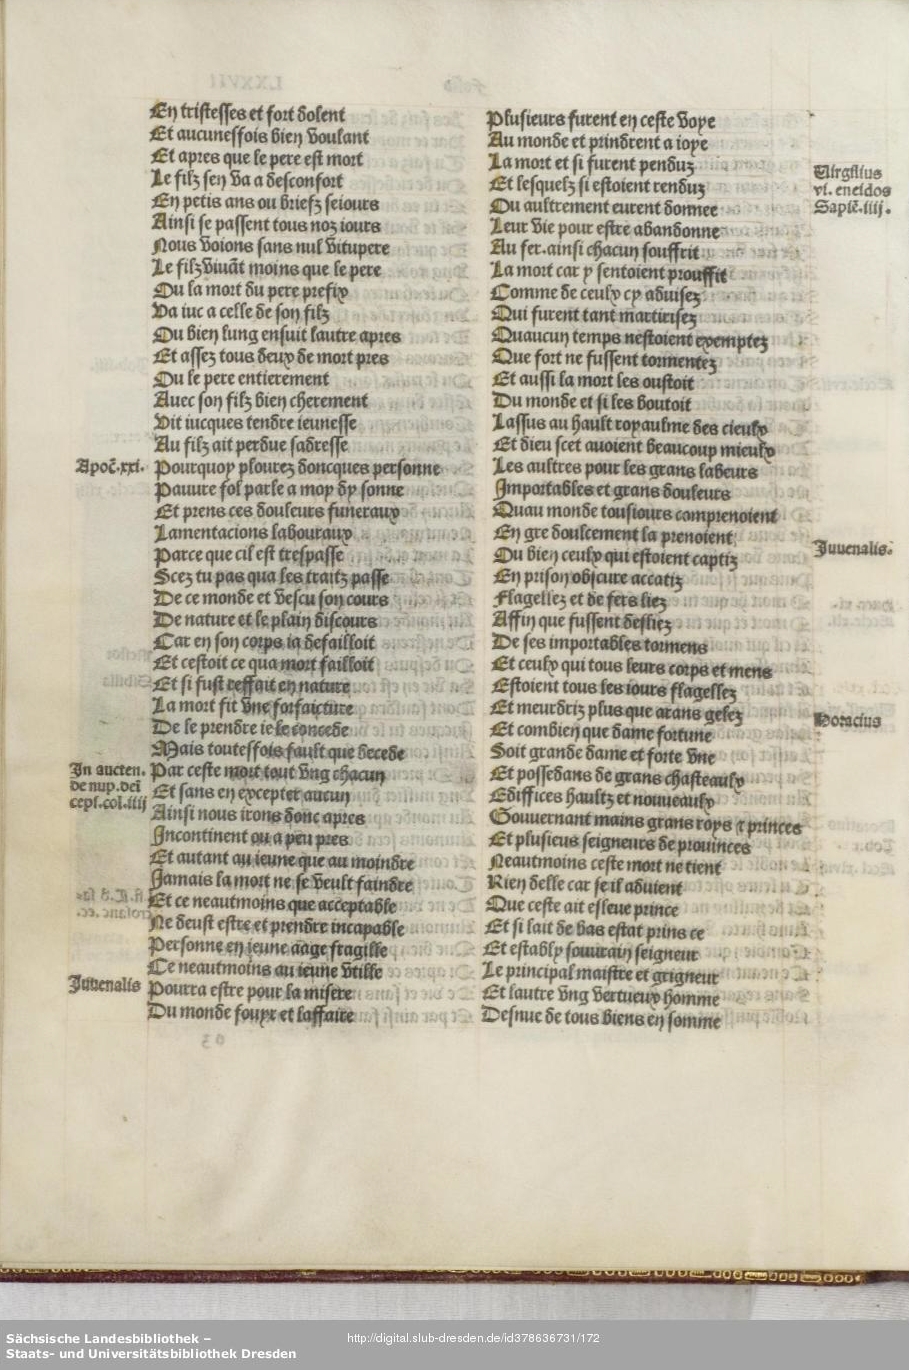 En tristesses et fort dolent
Et aucunesfois bien voulant
Et apres que le pere est mort
Le filz sen va a desconfort
En petis ans ou briefz seiours
Ainsi se passent tous noz iours
Nous voions sans nul vitupere
Le filz viuãt moins que le pere
Ou la mort du pere prefix
Va iuc a celle de son filz
Ou bien lung ensuit lautre apres
Et assez tous deux de mort pres
Ou le pere entierement
Auec son filz bien cherement
Vit iucques tendre ieunesse
Au filz ait perdue sadresse
Apoc̃.xxi.
Pourquoy plourez doncques personne
Pauure fol parle a moy dy sonne
Et prens ces douleurs funeraux
Lamentacions labouraux
Parce que cil est trespasse
Scez tu pas qua les traitz passe
De ce monde et vescu son cours
De nature et le plain discours
Car en son corps ia defailloit
Et cestoit ce qua mort failloit
Et si fust reffait en nature
La mort fit vne forfaicture
De le prendre ie le concede
Mais toutesfois fault que decede
In aucten.
de nup. dei
cepl.col.iiij
Par ceste mort tout vng chacun
Et sans en excepter aucun
Ainsi nous irons donc apres
Incontinent ou a peu pres
Et autant au ieune que au moindre
Jamais la mort ne se veult faindre
Et ce neautmoins que acceptable
Ne deust estre et prendre incapable
Personne en ieune aage fragille
Ce neautmoins au ieune vtille
Juuenalis
Pourra estre pour la misere
Du monde fouyr et laffaire
Plusieurs furent en ceste voye
Au monde et prindrent a ioye
La mort et si furent penduz
Et lesquelz si estoient renduz
Ou aultrement eurent donnee
Leur vie pour estre abandonne
Au fer. ainsi chacun souffrit
La mort car y sentoient prouffit
Comme de ceulx cy aduisez
Qui furent tant martirisez
Quaucun temps nestoient exemptez
Que fort ne fussent tormentez
Et aussi la mort les oustoit
Du monde et si les boutoit
Lassus au hault royaulme des cieulx
Et dieu scet auoient beaucoup mieulx
Les aultres pour les grans labeurs
Importables et grans douleurs
Quau monde tousiours comprenoient
En gre doulcement la prenoient
Ou bien ceulx qui estoient captiz
En prison obscure accatiz
Flagellez et de fers liez
Affin que fussent desliez
De ses importables tormens
Et ceulx qui tous leurs corps et mens
Estoient tous les iours flagellez
Et meurdriz plus que arans gelez
Et combien que dame fortune
Soit grande dame et forte vne
Et possedans de grans chasteaulx
Ediffices haultz et nouueaulx
Gouuernant mains grans roys ⁊ princes
Et plusieus seigneurs de prouinces
Neautmoins ceste mort ne tient
Rien delle car se il aduient
Que ceste ait esleue prince
Et si lait de bas estat prins ce
Et estably souurain seigneur
Le principal maistre et grigneur
Et lautre vng vertueux homme
Desnue de tous biens en somme
Virgilius
vi. eneidos
Sapiẽ.iiij.
Juuenalis.
Horacius
Sächsische Landesbibliothek –
Staats- und Universitätsbibliothek Dresden
http://digital.slub-dresden.de/id378636731/172